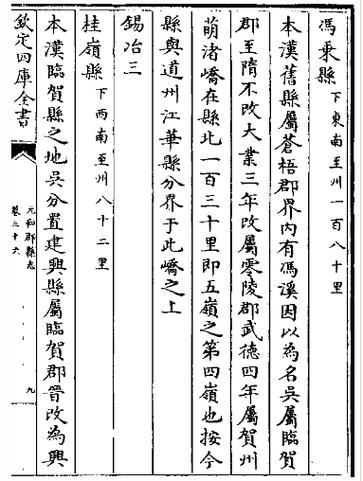 馮乗縣下東南至州一百八十里
本漢舊縣屬蒼梧郡界内有馮溪因以為名吳屬臨賀
郡至隋不改大業三年改屬零陵郡武德四年屬賀州
萌渚嶠在縣北一百三十里即五嶺之第四嶺也按今
縣與道州江華縣分界于此嶠之上
錫冶三
桂嶺縣下西南至州八十二里
本漢臨賀縣之地吳分置建興縣屬臨賀郡晉改為興
欽定四庫全書
元和郡縣志
卷三十六
九